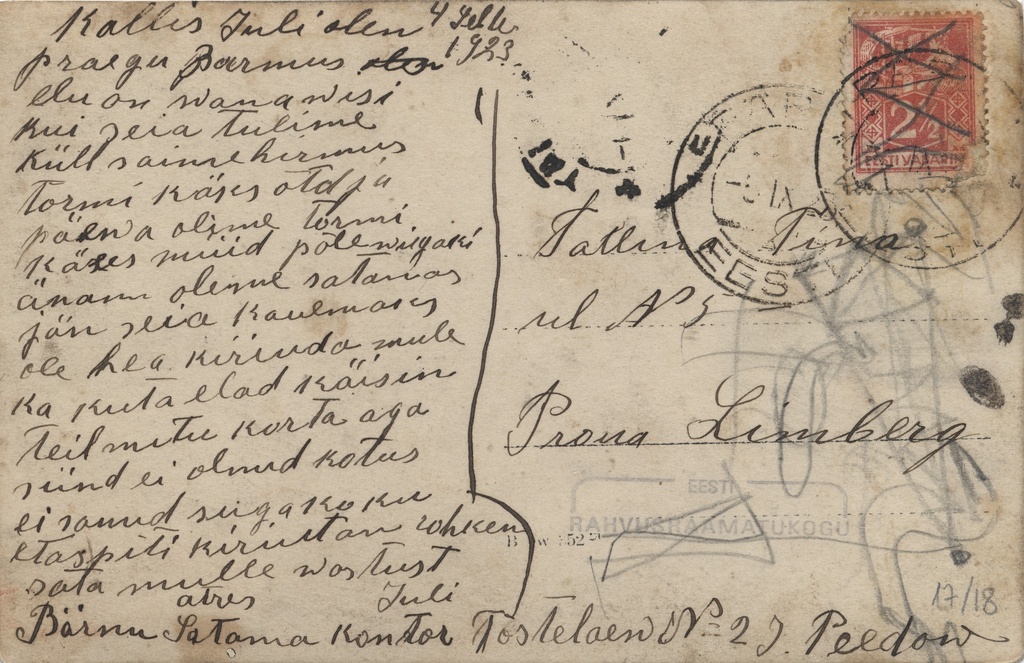 Kallis Juli olen
4 Seltt
1923
praegu Parmus olen
elu on wanawisi
kui seia tulime
küll saime hirmus
tormi käses otd ja
päewa olime tormi
käses müid põle wiigaki
änam oleme satamas
jän seia kauemaks
ole hea kirinda mule
ka kuta elad käisin
teil mitu korta aga
siind ei olnud kotus
ei sanud siiga kokku
etaspiti kiriutan rohken
sata mulle wostust
atres Juli
Bärnu Satama kontor Tostelaew № 2 J. Peedow
Tallina Tina
ul № 5
Proua Limberg
2½
EESTI VABARIIK
EESTI
-5 IX
EESTI
RAHVUSRAAMATUKOGU
17/18